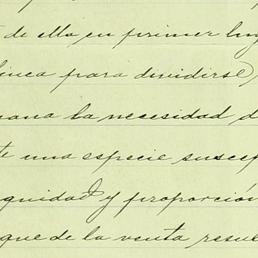 de ella en primer lug
linea para dividirse,
mana la necesidad d
te una especie suscep
quidad y proporción
que de la venta resul